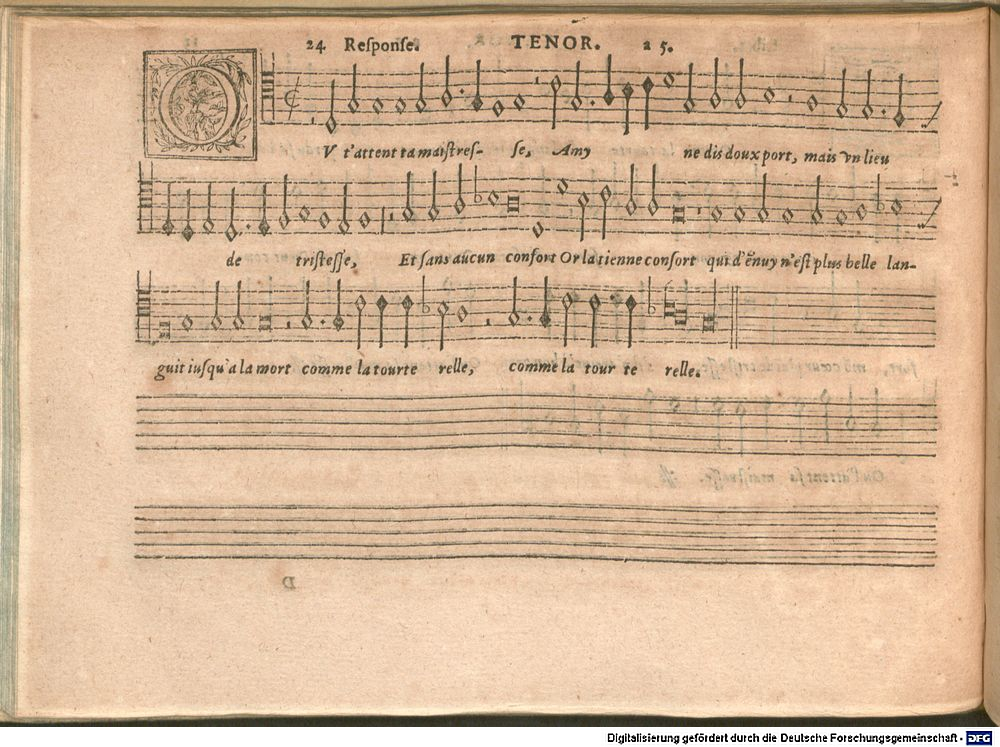 24 Response. TENOR. 25.
OV t'attent ta maistres- se, Amy ne dis doux port, mais vn lieu
de tristesse, Et sans aucun confort Or la tienne consort qui d'ẽnuy n'est plus belle lan-
guit iusqu'a la mort comme la tourte relle, comme la tour te relle.
Digitalisierung gefördert durch die Deutsche Forschungsgemeinschaft - DFG